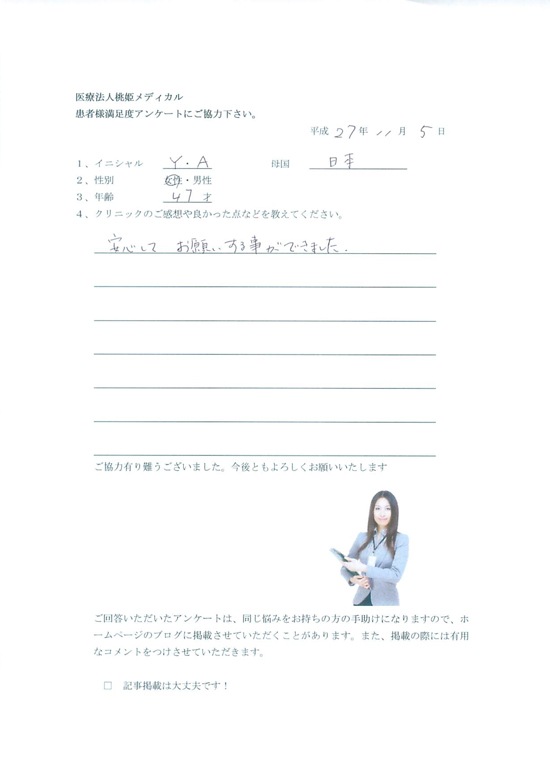 医療法人桃姫メディカル
患者様満足度アンケートにご協力下さい。
平成 27年 11月 5日
1、イニシャル Y・A 母国 日本
2、性別 女性・男性
3、年齢 47才
4、クリニックのご感想や良かった点などを教えてください。
安心して お願いする事ができました.
ご協力有り難うございました。今後ともよろしくお願いいたします
ご回答いただいたアンケートは、同じ悩みをお持ちの方の手助けになりますので、ホ
ームページのブログに掲載させていただくことがあります。また、掲載の際には有用
なコメントをつけさせていただきます。
□ 記事掲載は大丈夫です！